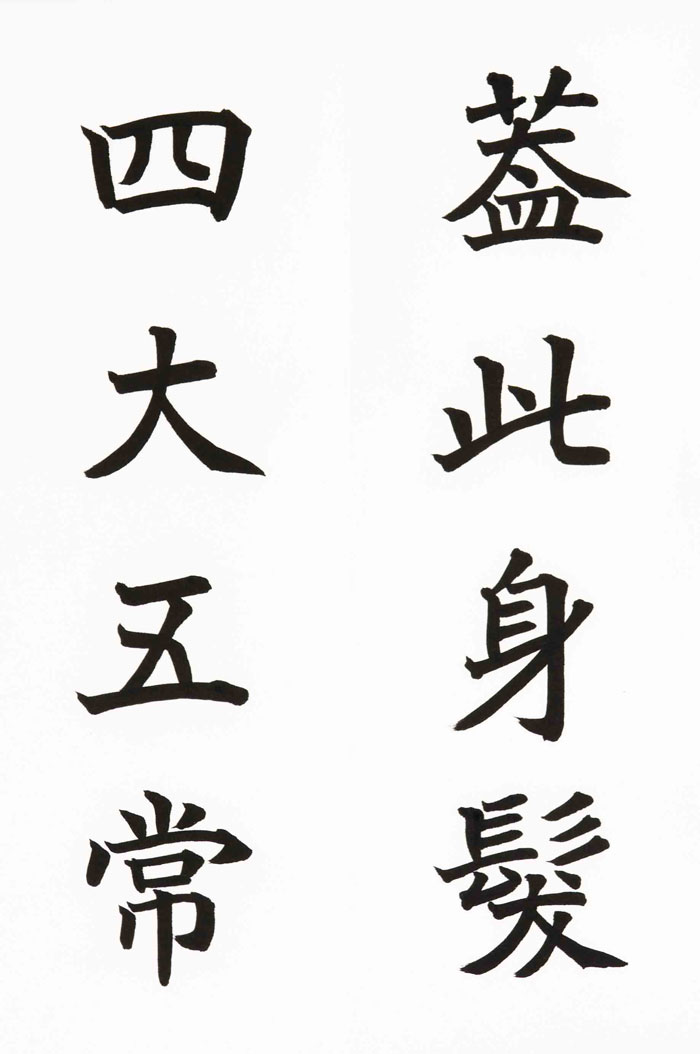 蓋此身髮
四大五常